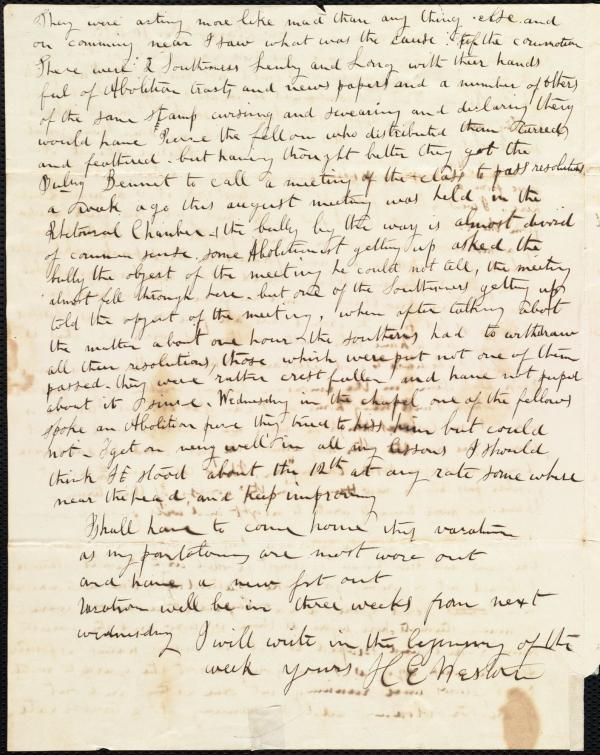 They were acting more like mad than any thing else and
on comming near I saw what was the cause of the commotion
There were 2 Southerners Henly and Long with their hands
ful of Abolition tracts and news papers and a number of others
of the same stamp cursing and swearing and declaring they
would have the fellow who distributed them Tarred
and feathered but having thought better they got the
Bully Bennet to call a meeting of the class to pass resolutions
a week ago this august meeting was held in the
Rhetorical Chamber & the bully by the way is almost devoid
of common sense. some Abolitionist getting up asked the
bully the object of the meeting he could not tell, the meeting
almost fell through here. but one of the Southerners getting up
told the opject of the meeting, when after talking about
the matter about one hour the southerns had to withdraw
all their resolutions, those which were put not one of them
passed. they were rather crest fallen and have not peeped
about it since. Wednesday in the chapel one of the fellows
spoke an Abolition piece they tried to hiss him but could
not. I get on very well in all my lessons I should
think I stood about the 12th at any rate some where
near the head and keep improving
I shall have to come home this vacation
as my pantaloons are most wore out
and have a new out
Vacation will be in three weeks from next
wednesday I will write in the of the
week yours H E Weston